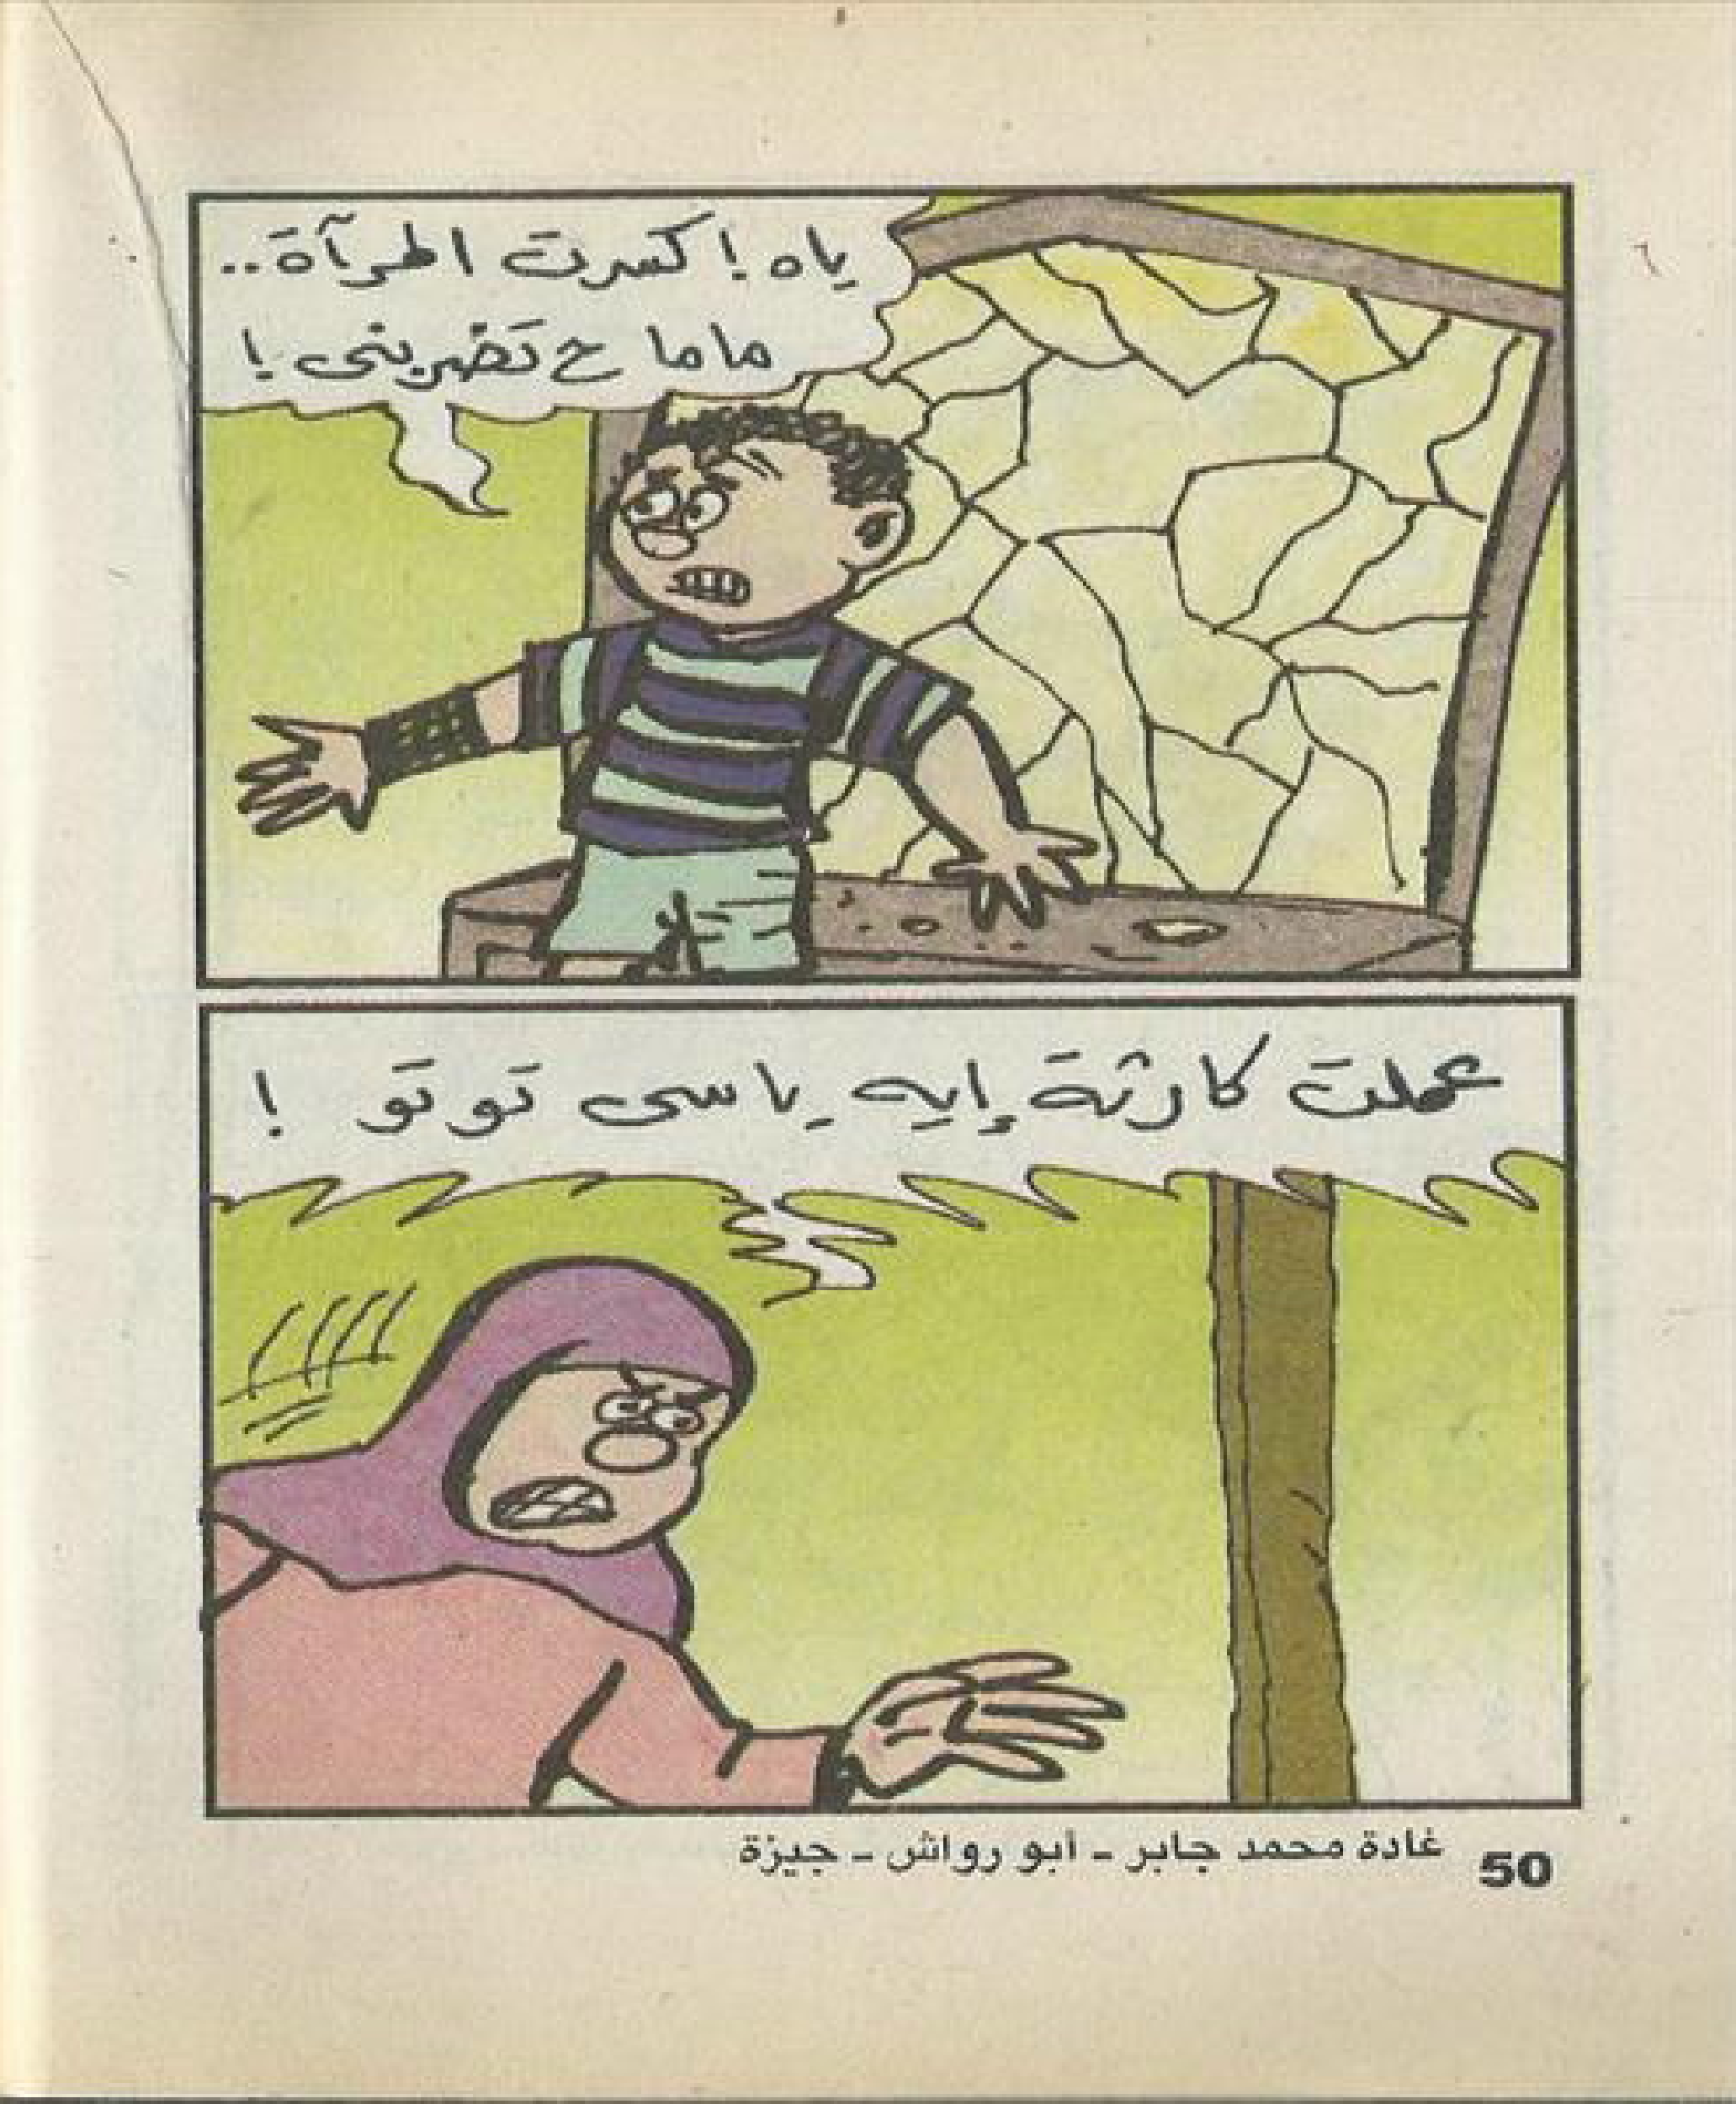 ياه ! كسرت المرآة..
ماما ح تضربنى !
عملت كارثة إيه ياسى توتو !
غادة محمد جابر - أبو رواش - جيزة
50